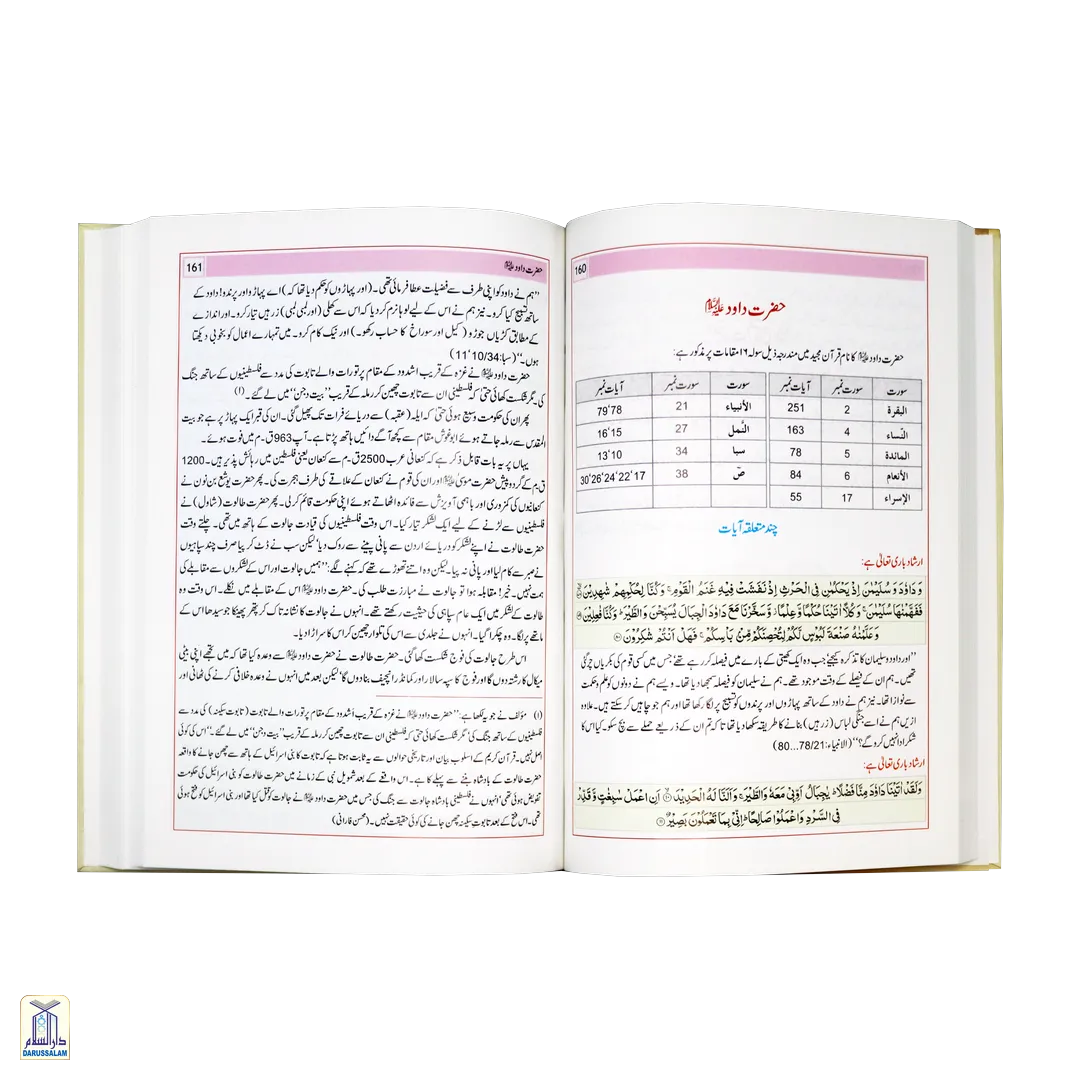 160
حضرت داود علیہ السلام
حضرت داود علیہ السلام کا نام قرآن مجید میں مندرجہ ذیل سولہ ۱۶ مقامات پر مذکور ہے:
سورت سورت نمبر آیات نمبر سورت سورت نمبر آیات نمبر
البقرة 2 251 الأنبياء 21 79٬78
النّساء 4 163 النّمل 27 16٬15
المائدة 5 78 سبا 34 13٬10
الأنعام 6 84 صٓ 38 30٬26٬24٬22٬17
الإسراء 17 55
چند متعلقہ آیات
ارشاد باری تعالیٰ ہے:
وَ دَاوٗدَ وَ سُلَيْمٰنَ اِذْ يَحْكُمٰنِ فِي الْحَرْثِ اِذْ نَفَشَتْ فِيْهِ غَنَمُ الْقَوْمِ ۚ وَ كُنَّا لِحُكْمِهِمْ شٰهِدِيْنَ
فَفَهَّمْنٰهَا سُلَيْمٰنَ ۚ وَ كُلًّا اٰتَيْنَا حُكْمًا وَّ عِلْمًا ۫ وَّ سَخَّرْنَا مَعَ دَاوٗدَ الْجِبَالَ يُسَبِّحْنَ وَ الطَّيْرَ ؕ وَ كُنَّا فٰعِلِيْنَ
وَ عَلَّمْنٰهُ صَنْعَةَ لَبُوْسٍ لَّكُمْ لِتُحْصِنَكُمْ مِّنْۢ بَاْسِكُمْ ۚ فَهَلْ اَنْتُمْ شٰكِرُوْنَ
”اور داود و سلیمان کا تذکرہ کیجیے جب وہ ایک کھیتی کے بارے میں فیصلہ کر رہے تھے جس میں کسی قوم کی بکریاں چر گئی
تھیں۔ ہم ان کے فیصلے کے وقت موجود تھے۔ ہم نے سلیمان کو فیصلہ سمجھا دیا تھا۔ ویسے ہم نے دونوں کو علم و حکمت
سے نوازا تھا۔ نیز ہم نے داود کے ساتھ پہاڑوں اور پرندوں کو تسبیح پر لگا رکھا تھا اور ہم جو چاہیں کر سکتے ہیں۔ علاوہ
ازیں ہم نے اسے جنگی لباس (زرہیں) بنانے کا طریقہ سکھا دیا تھا تاکہ تم ان کے ذریعے حملے سے بچ سکو۔ کیا اس کا
شکر ادا نہیں کرو گے؟“ (الانبیاء:78/21...80)
ارشاد باری تعالیٰ ہے:
وَ لَقَدْ اٰتَيْنَا دَاوٗدَ مِنَّا فَضْلًا ؕ يٰجِبَالُ اَوِّبِيْ مَعَهٗ وَ الطَّيْرَ ۚ وَ اَلَنَّا لَهُ الْحَدِيْدَ اَنِ اعْمَلْ سٰبِغٰتٍ وَّ قَدِّرْ
فِي السَّرْدِ وَ اعْمَلُوْا صَالِحًا ؕ اِنِّيْ بِمَا تَعْمَلُوْنَ بَصِيْرٌ
حضرت داود علیہ السلام 161
”ہم نے داود کو اپنی طرف سے فضیلت عطا فرمائی تھی۔ (اور پہاڑوں کو حکم دیا تھا کہ) اے پہاڑو اور پرندو! داود کے
ساتھ تسبیح کیا کرو۔ نیز ہم نے اس کے لیے لوہا نرم کر دیا کہ اس سے کھلی (اور لمبی لمبی) زرہیں تیار کرو۔ اور اندازے
کے مطابق کڑیاں جوڑو (کیل اور سوراخ کا حساب رکھو۔) اور نیک کام کرو۔ میں تمہارے اعمال کو بخوبی دیکھتا
ہوں۔“ (سبا:10/34٬11)
حضرت داود علیہ السلام نے غزہ کے قریب اشدود کے مقام پر تورات والے تابوت کی مدد سے فلسطینیوں کے ساتھ جنگ
کی۔ مگر شکست کھائی حتی کہ فلسطینی ان سے تابوت چھین کر رملہ کے قریب ”بیت دجن“ میں لے گئے۔ (۱)
پھر ان کی حکومت وسیع ہوئی حتی کہ ایلہ (عقبہ) سے دریائے فرات تک پھیل گئی۔ ان کی قبر ایک پہاڑ پر ہے جو بیت
المقدس سے رملہ جاتے ہوئے ابوغوش مقام سے کچھ آگے دائیں ہاتھ پڑتا ہے۔ آپ 963 ق۔م میں فوت ہوئے۔
یہاں پر یہ بات قابل ذکر ہے کہ کنعانی عرب 2500 ق۔م سے کنعان یعنی فلسطین میں رہائش پذیر ہیں۔ 1200
ق۔م کے گرد و پیش حضرت موسیٰ علیہ السلام اور ان کی قوم نے کنعان کے علاقے کی طرف ہجرت کی۔ پھر حضرت یوشع بن نون نے
کنعانیوں کی کمزوری اور باہمی آویزش سے فائدہ اٹھاتے ہوئے اپنی حکومت قائم کر لی۔ پھر حضرت طالوت (شاول) نے
فلسطینیوں سے لڑنے کے لیے ایک لشکر تیار کیا۔ اس وقت فلسطینیوں کی قیادت جالوت کے ہاتھ میں تھی۔ چلتے وقت
حضرت طالوت نے اپنے لشکر کو دریائے اردن سے پانی پینے سے روک دیا‘ لیکن سب نے ڈٹ کر پیا صرف چند سپاہیوں
نے صبر سے کام لیا اور پانی نہ پیا۔ لیکن وہ اتنے تھوڑے تھے کہ کہنے لگے: ”ہمیں جالوت اور اس کے لشکروں سے مقابلے کی
ہمت نہیں۔ خیر! مقابلہ ہوا تو جالوت نے مبارزت طلب کی۔ حضرت داود علیہ السلام اس کے مقابلے میں نکلے۔ اس وقت وہ
طالوت کے لشکر میں ایک عام سپاہی کی حیثیت رکھتے تھے۔ انہوں نے جالوت کا نشانہ تاک کر پتھر پھینکا جو سیدھا اس کے
ماتھے پر لگا۔ وہ چکرا گیا۔ انہوں نے جلدی سے اس کی تلوار چھین کر اس کا سر اڑا دیا۔
اس طرح جالوت کی فوج شکست کھا گئی۔ حضرت طالوت نے حضرت داود علیہ السلام سے وعدہ کیا تھا کہ میں تجھے اپنی بیٹی
میکال کا رشتہ دوں گا اور فوج کا سپہ سالار اور کمانڈر انچیف بنا دوں گا‘ لیکن بعد میں انہوں نے وعدہ خلافی کرنے کی ٹھانی اور
(۱) مؤلف نے جو یہ لکھا ہے: ”حضرت داود علیہ السلام نے غزہ کے قریب اشدود کے مقام پر تورات والے تابوت (تابوت سکینہ) کی مدد سے
فلسطینیوں کے ساتھ جنگ کی‘ مگر شکست کھائی حتی کہ فلسطینی ان سے تابوت چھین کر رملہ کے قریب ”بیت دجن“ میں لے گئے۔“ اس کی کوئی
اصل نہیں۔ قرآن کریم کے اسلوب بیان اور تاریخی حوالوں سے یہ ثابت ہوتا ہے کہ تابوت کا بنی اسرائیل کے ہاتھ سے چھن جانے کا واقعہ
حضرت طالوت کے بادشاہ بننے سے پہلے کا ہے۔ اس واقعے کے بعد شموئیل نبی کے زمانے میں حضرت طالوت کو بنی اسرائیل کی حکومت
تفویض ہوئی تھی‘ انہوں نے فلسطینی بادشاہ جالوت سے جنگ کی جس میں حضرت داود علیہ السلام نے جالوت کو قتل کیا تھا اور بنی اسرائیل کو فتح ہوئی
تھی۔ اس فتح کے بعد تابوت سکینہ چھن جانے کی کوئی حقیقت نہیں۔ (محسن فارانی)
دارالسلام
DARUSSALAM